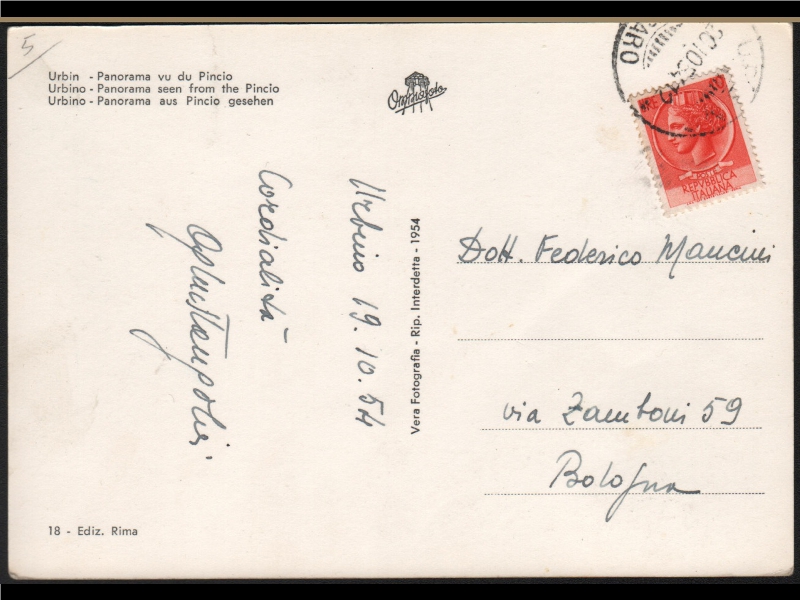 5
Urbin - Panorama vu du Pincio
Urbino - Panorama seen from the Pincio
Urbino - Panorama aus Pincio gesehen
Urbino 19. 10. 54
Cordialità
Vera Fotografia - Rip. Interdetta - 1954
POSTE
REPVBBLICA
ITALIANA
Dott. Federico Mancini
via Zamboni 59
Bologna
18 - Ediz. Rima